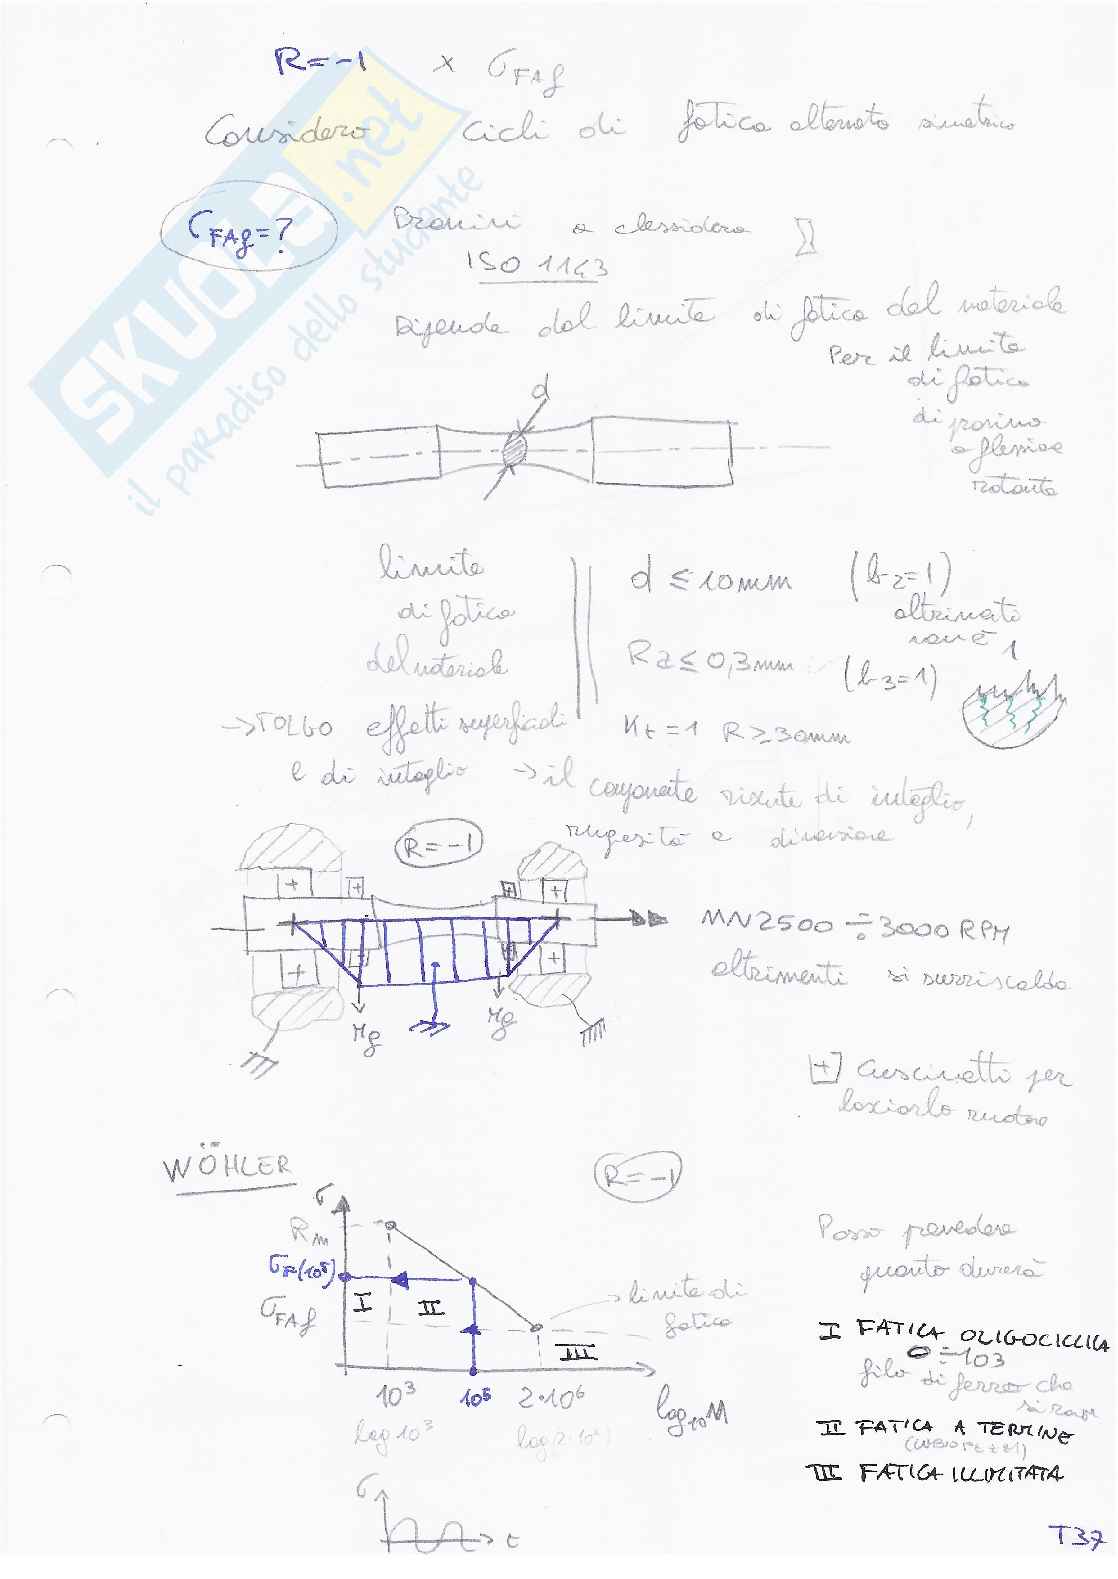 R=-1 x σFAf
Considero cicli di fatica alternato simmetrico
SKUOLA.net
il paradiso dello studente
σFAf=?
Provini a clessidra
ISO 1143
Dipende dal limite di fatica del materiale
Per il limite
di fatica
di provino
a flessione
rotante
d
limite
di fatica
del materiale
d ≤ 10mm (b2=1)
altrimenti
non è 1
Ra ≤ 0,3mm (b3=1)
→ TOLGO effetti superficiali
Kt=1 R≥30mm
e di intaglio → il componente risente di intaglio,
rugosità e dimensione
R=-1
MN2500÷3000 RPM
altrimenti si surriscalda
Mg
Mg
Cuscinetti per
lasciarlo ruotare
WÖHLER
R=-1
σ
Rm
σF(10⁵)
σFAf
I
II
III
limite di
fatica
10³
10⁵
2·10⁶
log10N
log10³
log(2·10⁶)
Posso prevedere
quanto durerà
I FATICA OLIGOCICLICA
0÷103
filo di ferro che
si rompe
II FATICA A TERMINE
III FATICA ILLIMITATA
σ
t
T37